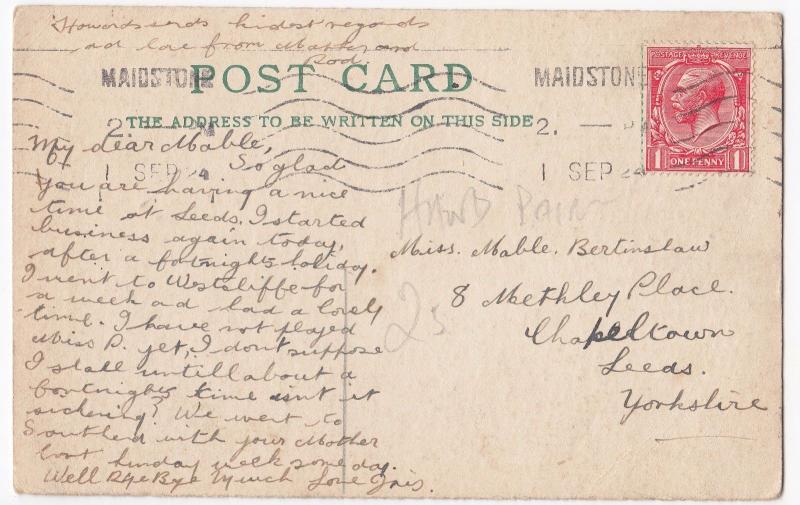 Howard sends kindest regards
ad love from Mother and
Rod.
MAIDSTONE
POST CARD
MAIDSTONE
POSTAGE REVENUE
2. — PM
THE ADDRESS TO BE WRITTEN ON THIS SIDE
2. — PM
1 SEP 24
1 SEP 24
1 ONE PENNY 1
My dear Mable,
So glad
you are having a nice
time at Leeds. I started
business again today,
after a fortnights holiday.
I went to Westcliffe for
a week ad had a lovely
time. I have not played
Miss P. yet, I don't suppose
I shall untill about a
fortnights time isnt it
sickening? We went to
Southend with your Mother
last Sunday week some day.
Well Bye Bye Much Love Iris.
HAND PAIN
2s
Miss. Mable. Bertinslaw
8 Methley Place.
Chapeltown
Leeds.
Yorkshire